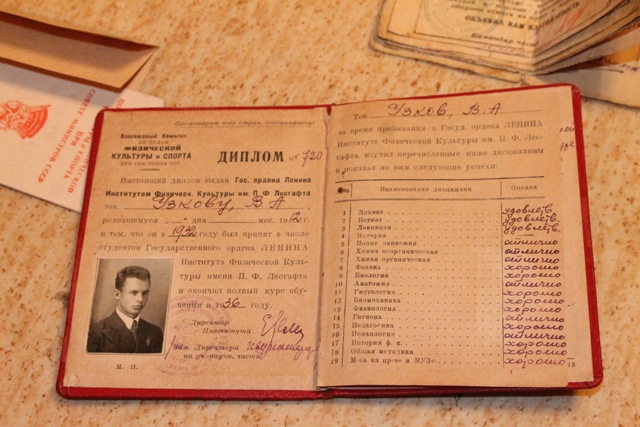 Пролетарии всех стран, соединяйтесь!
Всесоюзный Комитет
по делам
ФИЗИЧЕСКОЙ
КУЛЬТУРЫ И СПОРТА
при СНК Союза ССР
ДИПЛОМ № 720
Настоящий диплом выдан Гос. ордена Ленина
Институтом Физическ. Культуры им. П. Ф. Лесгафта
тов. Узкову, В А
родившемуся „ “ дня мес. 1912 г.
в том, что он в 1932 году был принят в число
студентов Государственного ордена ЛЕНИНА
Института Физической Куль-
туры имени П. Ф. Лесгафта
и окончил полный курс обу-
чения в 1936 году.
Директор
Института
Зам. Директора
по уч.-научн. части
М. П.
Тов. Узков, В. А
за время пребывания в Госуд. ордена ЛЕНИНА
Институте Физической Культуры им. П. Ф. Лес-
гафта изучил перечисленные ниже дисциплины
и показал по ним следующие успехи:
Наименование дисциплин Оценка
1 Диамат удовлетв.
2 Истмат удовлетв.
3 Ленинизм удовлетв.
4 История
5 Полит экономия отлично
6 Химия неорганическая отлично
7 Химия органическая отлично
8 Физика хорошо
9 Биология хорошо
10 Анатомия отлично
11 Гистология хорошо
12 Биомеханика хорошо
13 Физиология хорошо
14 Гигиена отлично
15 Педагогика хорошо
16 Психология отлично
17 История ф. к. хорошо
18 Общая методика хорошо
19 М-ка на пр-ве и ВУЗе хорошо